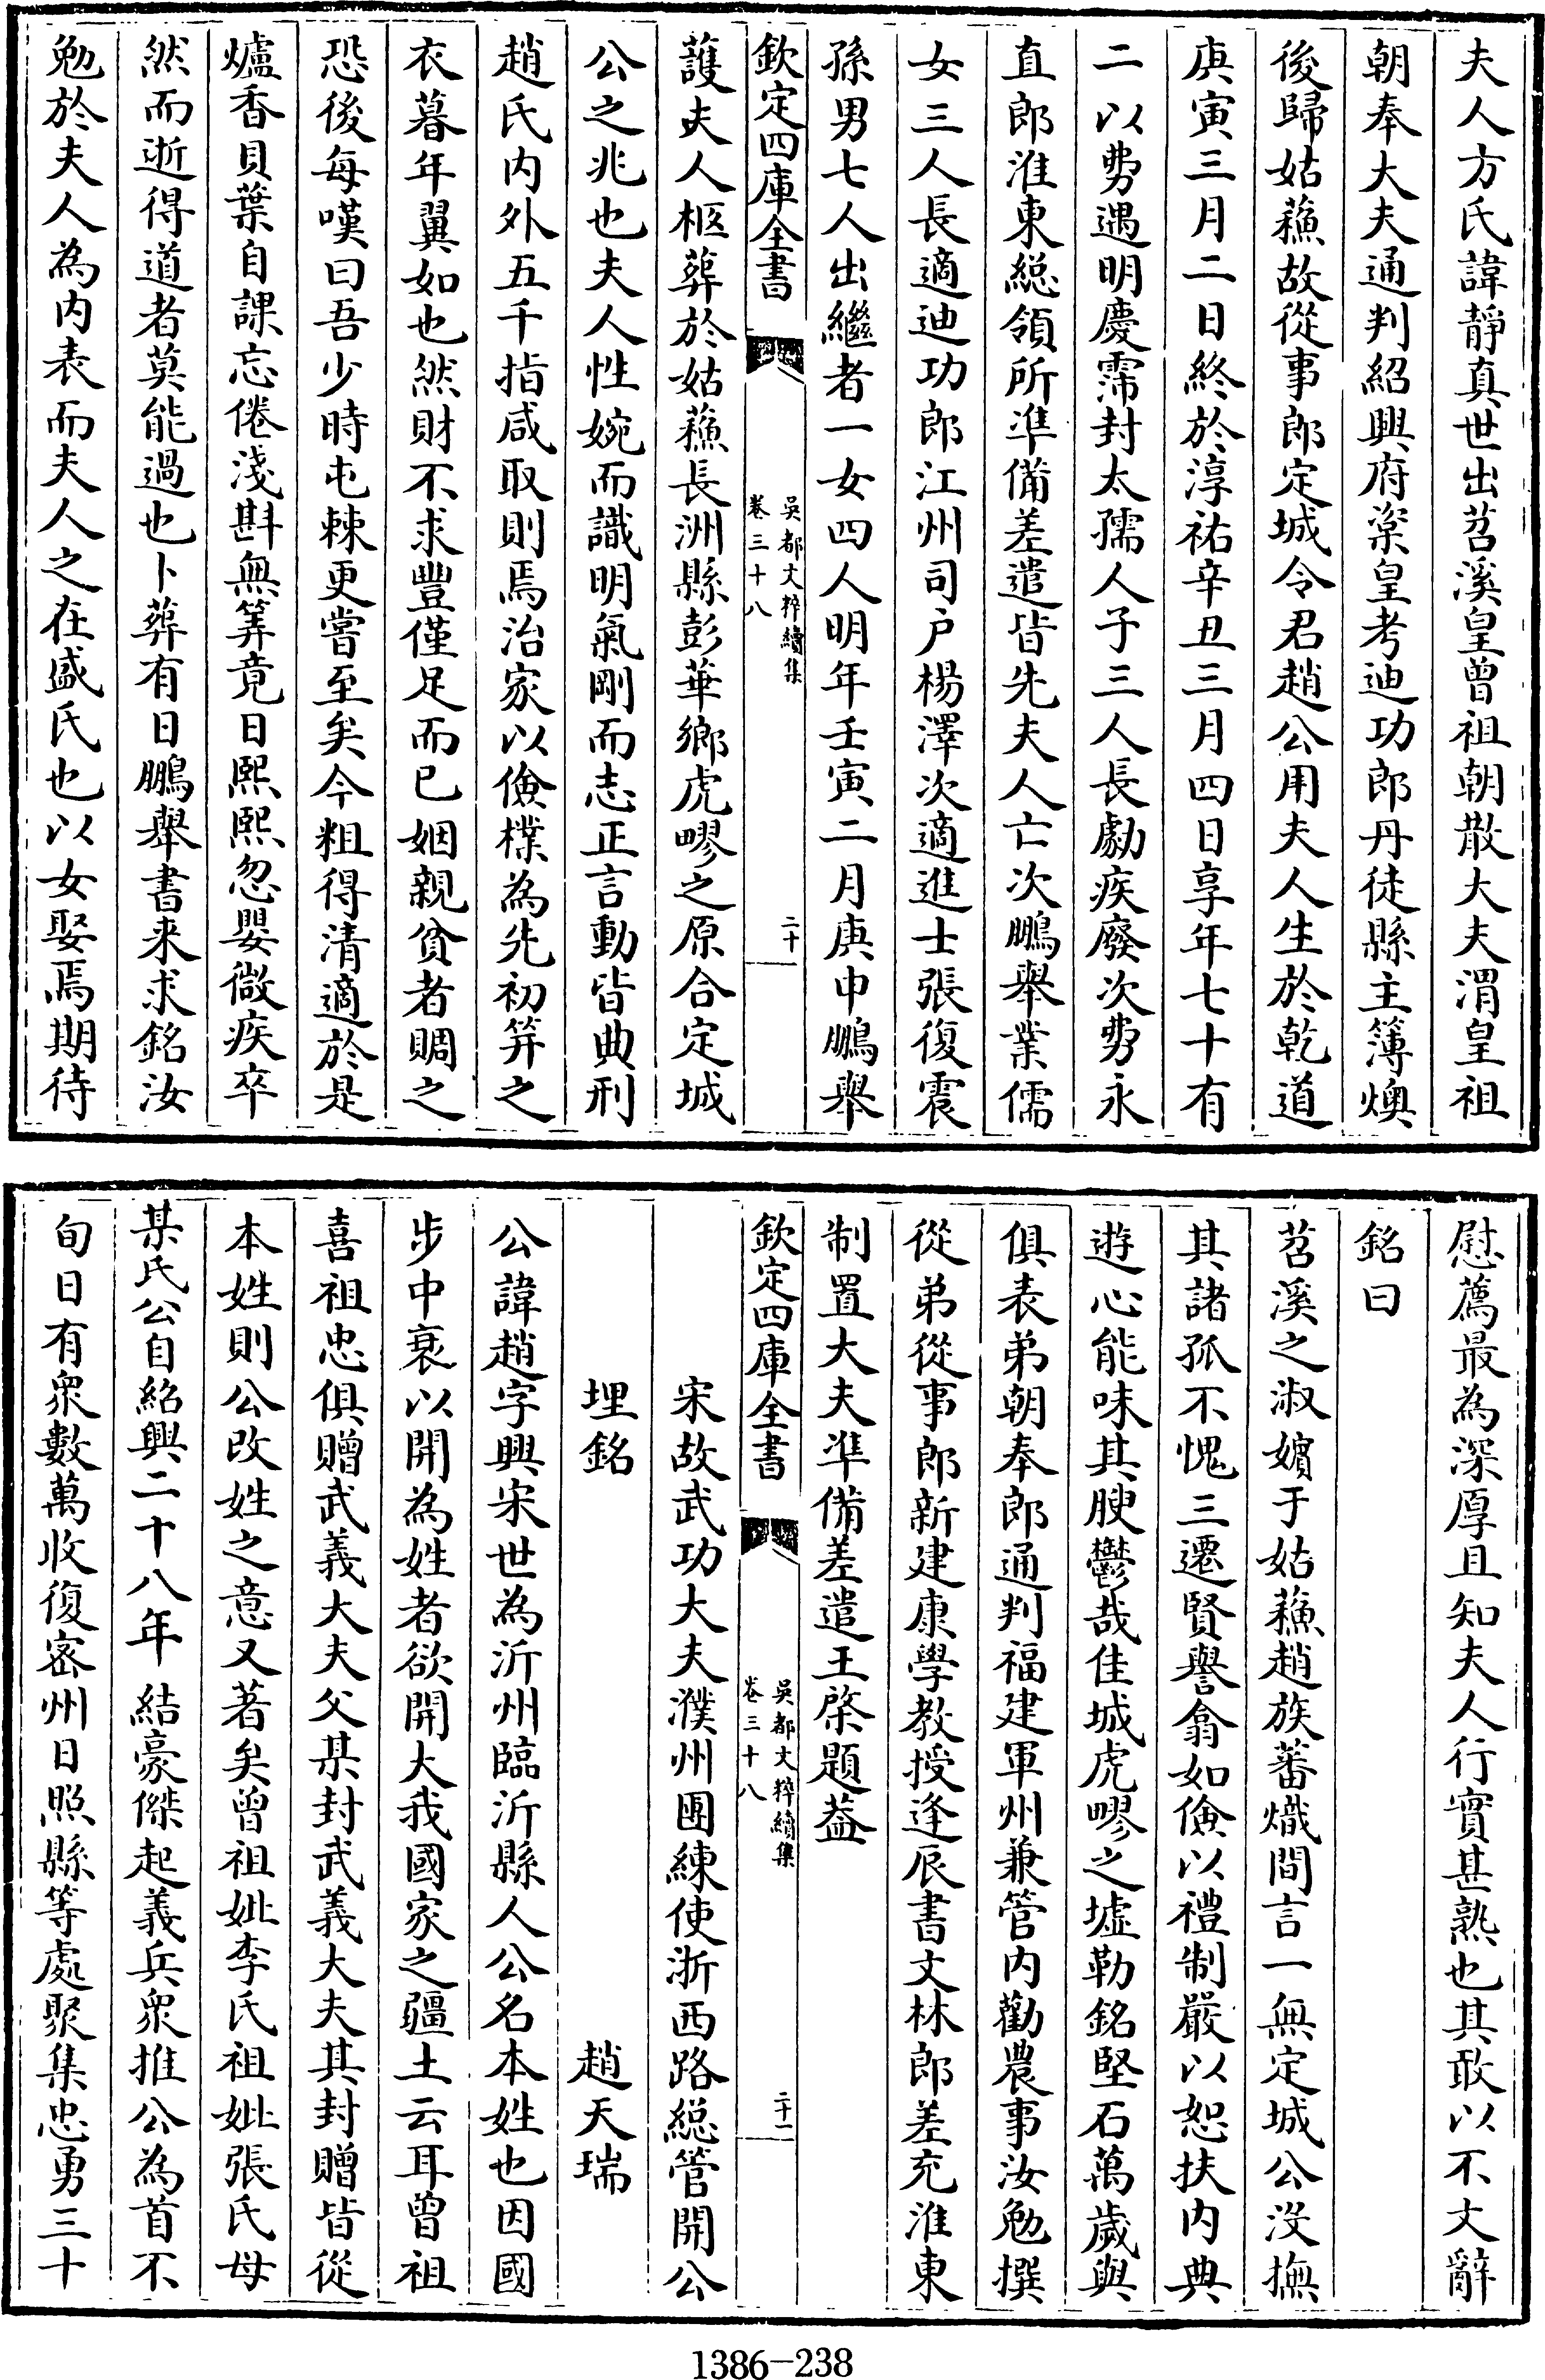 夫人方氏諱靜真世出苕溪皇曾祖朝散大夫渭皇祖
朝奉大夫通判紹興府楶皇考迪功郎丹徒縣主簿燠
後歸姑蘓故從事郎定城令君趙公用夫人生於乾道
庚寅三月二日終於淳祐辛丑三月四日享年七十有
二以男遇明慶霈封太孺人子三人長勮疾廢次男永
直郎淮東總領所凖備差遣皆先夫人亡次鵬舉業儒
女三人長適迪功郎江州司户楊澤次適進士張復震
孫男七人出繼者一女四人明年壬寅二月庚申鵬舉
欽定四庫全書
吳都文粹續集
卷三十八
二十
護夫人柩葬於姑蘓長洲縣彭華鄉虎嘐之原合定城
公之兆也夫人性婉而識明氣剛而志正言動皆典刑
趙氏内外五千指咸取則焉治家以儉樸為先初笄之
衣暮年翼如也然財不求豐僅足而已姻親貧者賙之
恐後每嘆曰吾少時屯棘更嘗至矣今粗得清適於是
爐香貝葉自課忘倦淺斟無筭竟日熙熙忽嬰微疾卒
然而逝得道者莫能過也卜葬有日鵬舉書来求銘汝
勉於夫人為内表而夫人之在盛氏也以女娶焉期待
慰薦最為深厚且知夫人行實甚熟也其敢以不文辭
銘曰
苕溪之淑嬪于姑蘓趙族蕃熾間言一無定城公没撫
其諸孤不愧三遷賢譽翕如儉以禮制嚴以恕扶内典
遊心能味其腴鬱哉佳城虎嘐之墟勒銘堅石萬歲與
俱表弟朝奉郎通判福建軍州兼管内勸農事汝勉撰
從弟從事郎新建康學教授逢辰書文林郎差充淮東
制置大夫凖備差遣王棨題葢
欽定四庫全書
吳都文粹續集
卷三十八
二十一
宋故武功大夫濮州團練使浙西路總管開公
埋銘
趙天瑞
公諱趙字興宋世為沂州臨沂縣人公名本姓也因國
步中衰以開為姓者欲開大我國家之疆土云耳曾祖
喜祖忠俱贈武義大夫父某封武義大夫其封贈皆從
本姓則公改姓之意又著矣曾祖妣李氏祖妣張氏母
某氏公自紹興二十八年結豪傑起義兵衆推公為首不
旬日有衆數萬收復密州日照縣等處聚集忠勇三十
1386-238